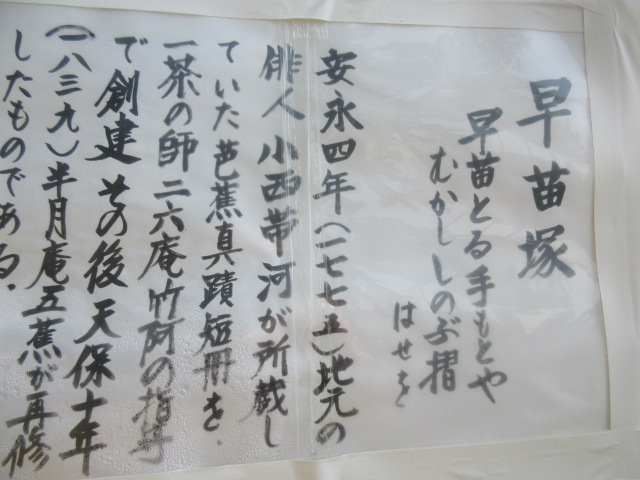 早苗塚
早苗とる手もとや
むかししのぶ摺
はせを
安永四年（一七七五）地元の
俳人小西帯河が所蔵し
ていた芭蕉真蹟短冊を
一茶の師二六庵竹阿の指導
で創建その後天保十年
（一八三九）半月庵五蕉が再修
したものである．